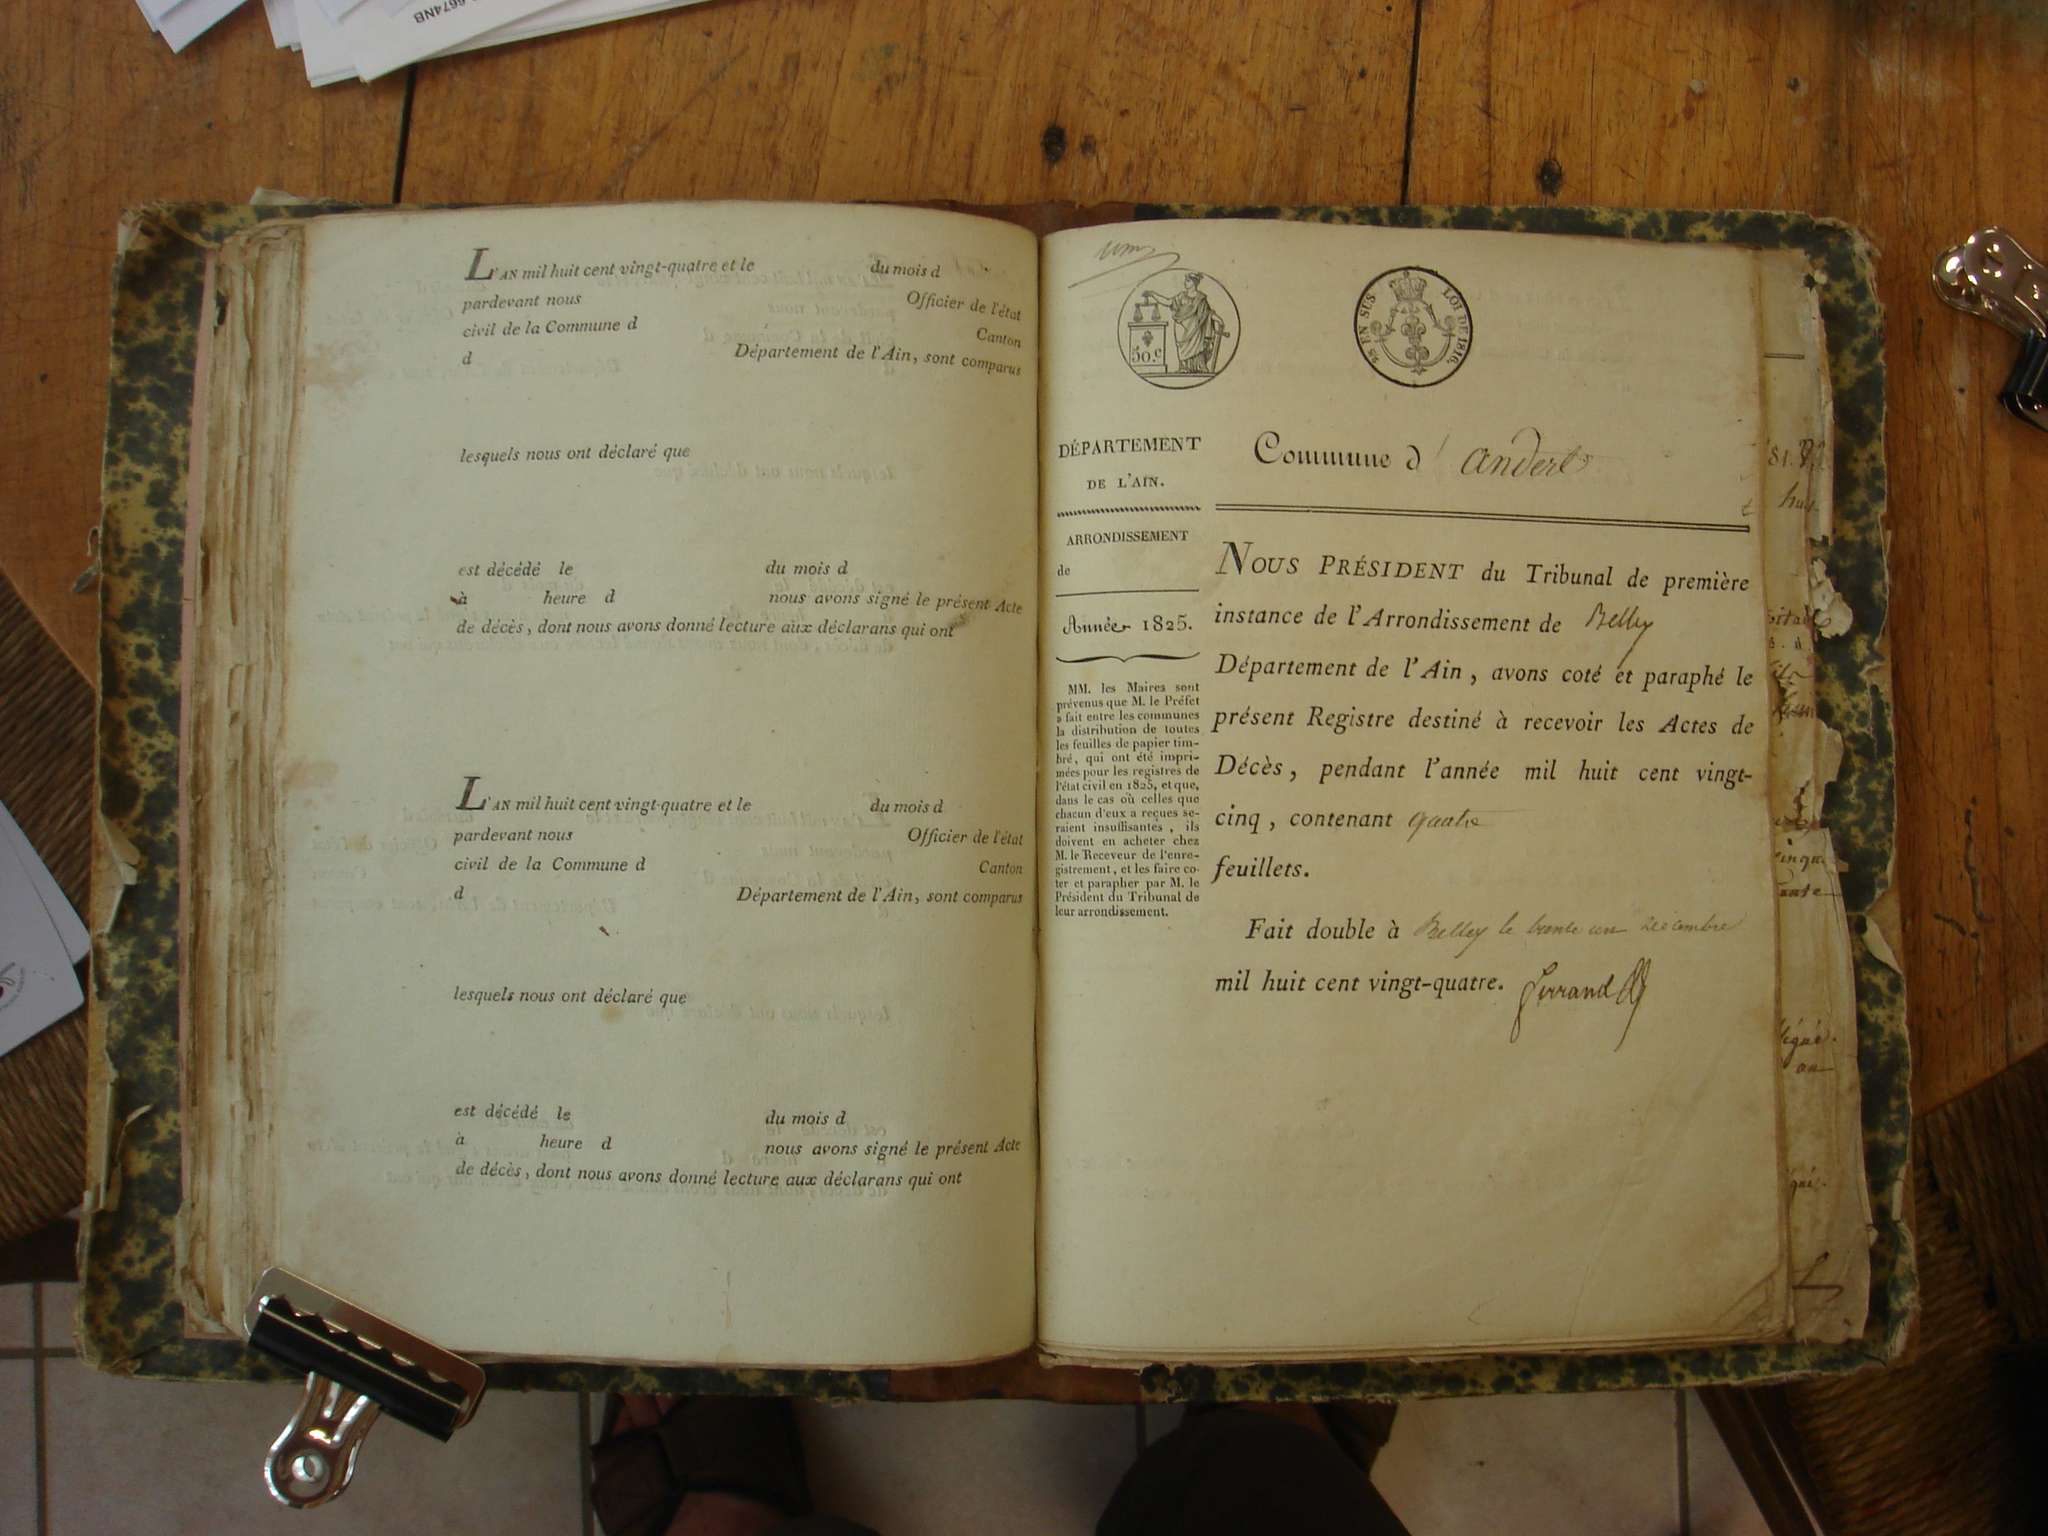 6674NB
L'AN mil huit cent vingt-quatre et le du mois d
pardevant nous Officier de l'état
civil de la Commune d Canton
d Département de l'Ain, sont comparus
lesquels nous ont déclaré que
est décédé le du mois d
à heure d nous avons signé le présent Acte
de décès, dont nous avons donné lecture aux déclarans qui ont
L'AN mil huit cent vingt-quatre et le du mois d
pardevant nous Officier de l'état
civil de la Commune d Canton
d Département de l'Ain, sont comparus
lesquels nous ont déclaré que
est décédé le du mois d
à heure d nous avons signé le présent Acte
de décès, dont nous avons donné lecture aux déclarans qui ont
50.c
25 EN SUS LOI DE 1816.
DÉPARTEMENT
DE L'AIN.
ARRONDISSEMENT
de
Année 1825.
MM. les Maires sont
prévenus que M. le Préfet
a fait entre les communes
la distribution de toutes
les feuilles de papier tim-
bré, qui ont été impri-
mées pour les registres de
l'état civil en 1825, et que,
dans le cas où celles que
chacun d'eux a reçues se-
raient insuffisantes, ils
doivent en acheter chez
M. le Receveur de l'enre-
gistrement, et les faire co-
ter et parapher par M. le
Président du Tribunal de
leur arrondissement.
Commune d' andert
NOUS PRÉSIDENT du Tribunal de première
instance de l'Arrondissement de Belley
Département de l'Ain, avons coté et paraphé le
présent Registre destiné à recevoir les Actes de
Décès, pendant l'année mil huit cent vingt-
cinq, contenant quatre
feuillets.
Fait double à Belley le trente un Décembre
mil huit cent vingt-quatre.